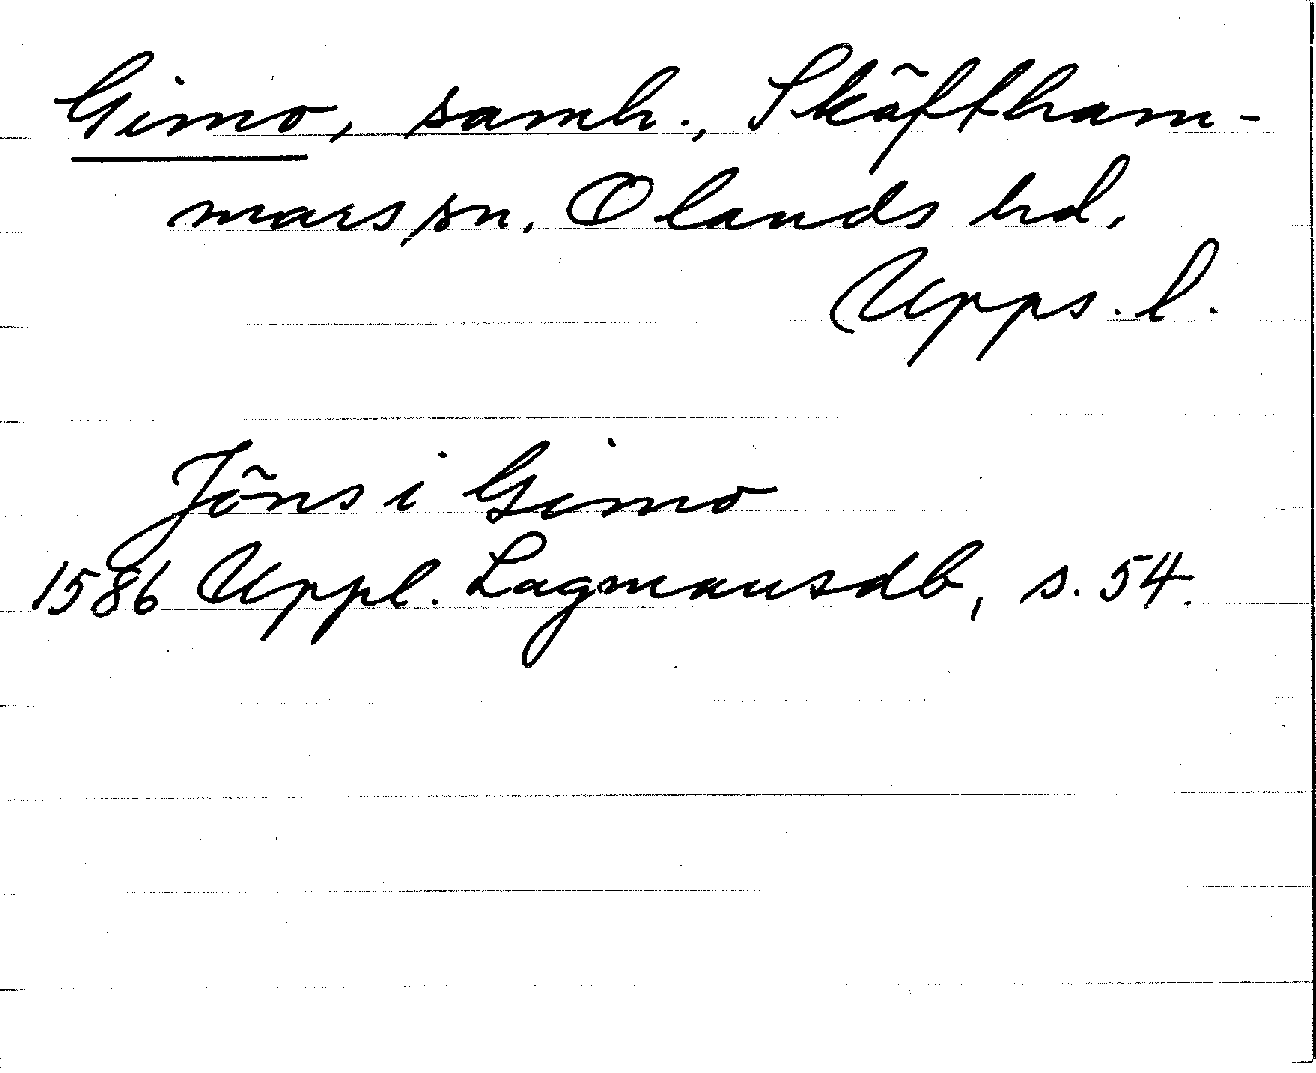 Gimo, samh., Skäftham-
mars sn. Olands hd.
Upps. l.
Jöns i Gimo
1586 Uppl. Lagmansdb, s. 54.